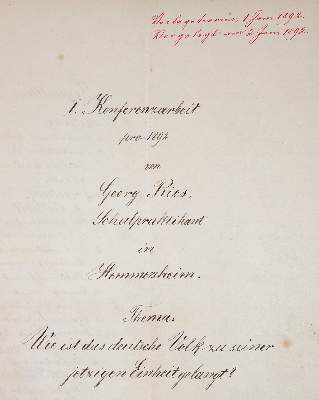 Vorlagetermin: 1. Juni 1892.
Vorgelegt am 2. Juni 1892.
1. Konferenzarbeit
pro 1892
von
Georg Ries.
Schulpraktikant
in
Hemmersheim.
Thema.
Wie ist das deutsche Volk zu seiner
jetzigen Einheit gelangt?